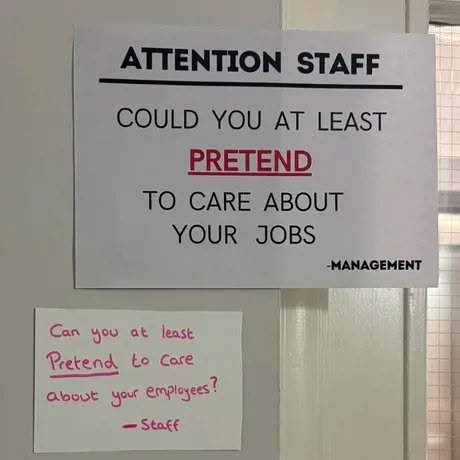 ATTENTION STAFF
COULD YOU AT LEAST
PRETEND
TO CARE ABOUT
YOUR JOBS
-MANAGEMENT
Can you at least
Pretend to care
about your employees?
- Staff